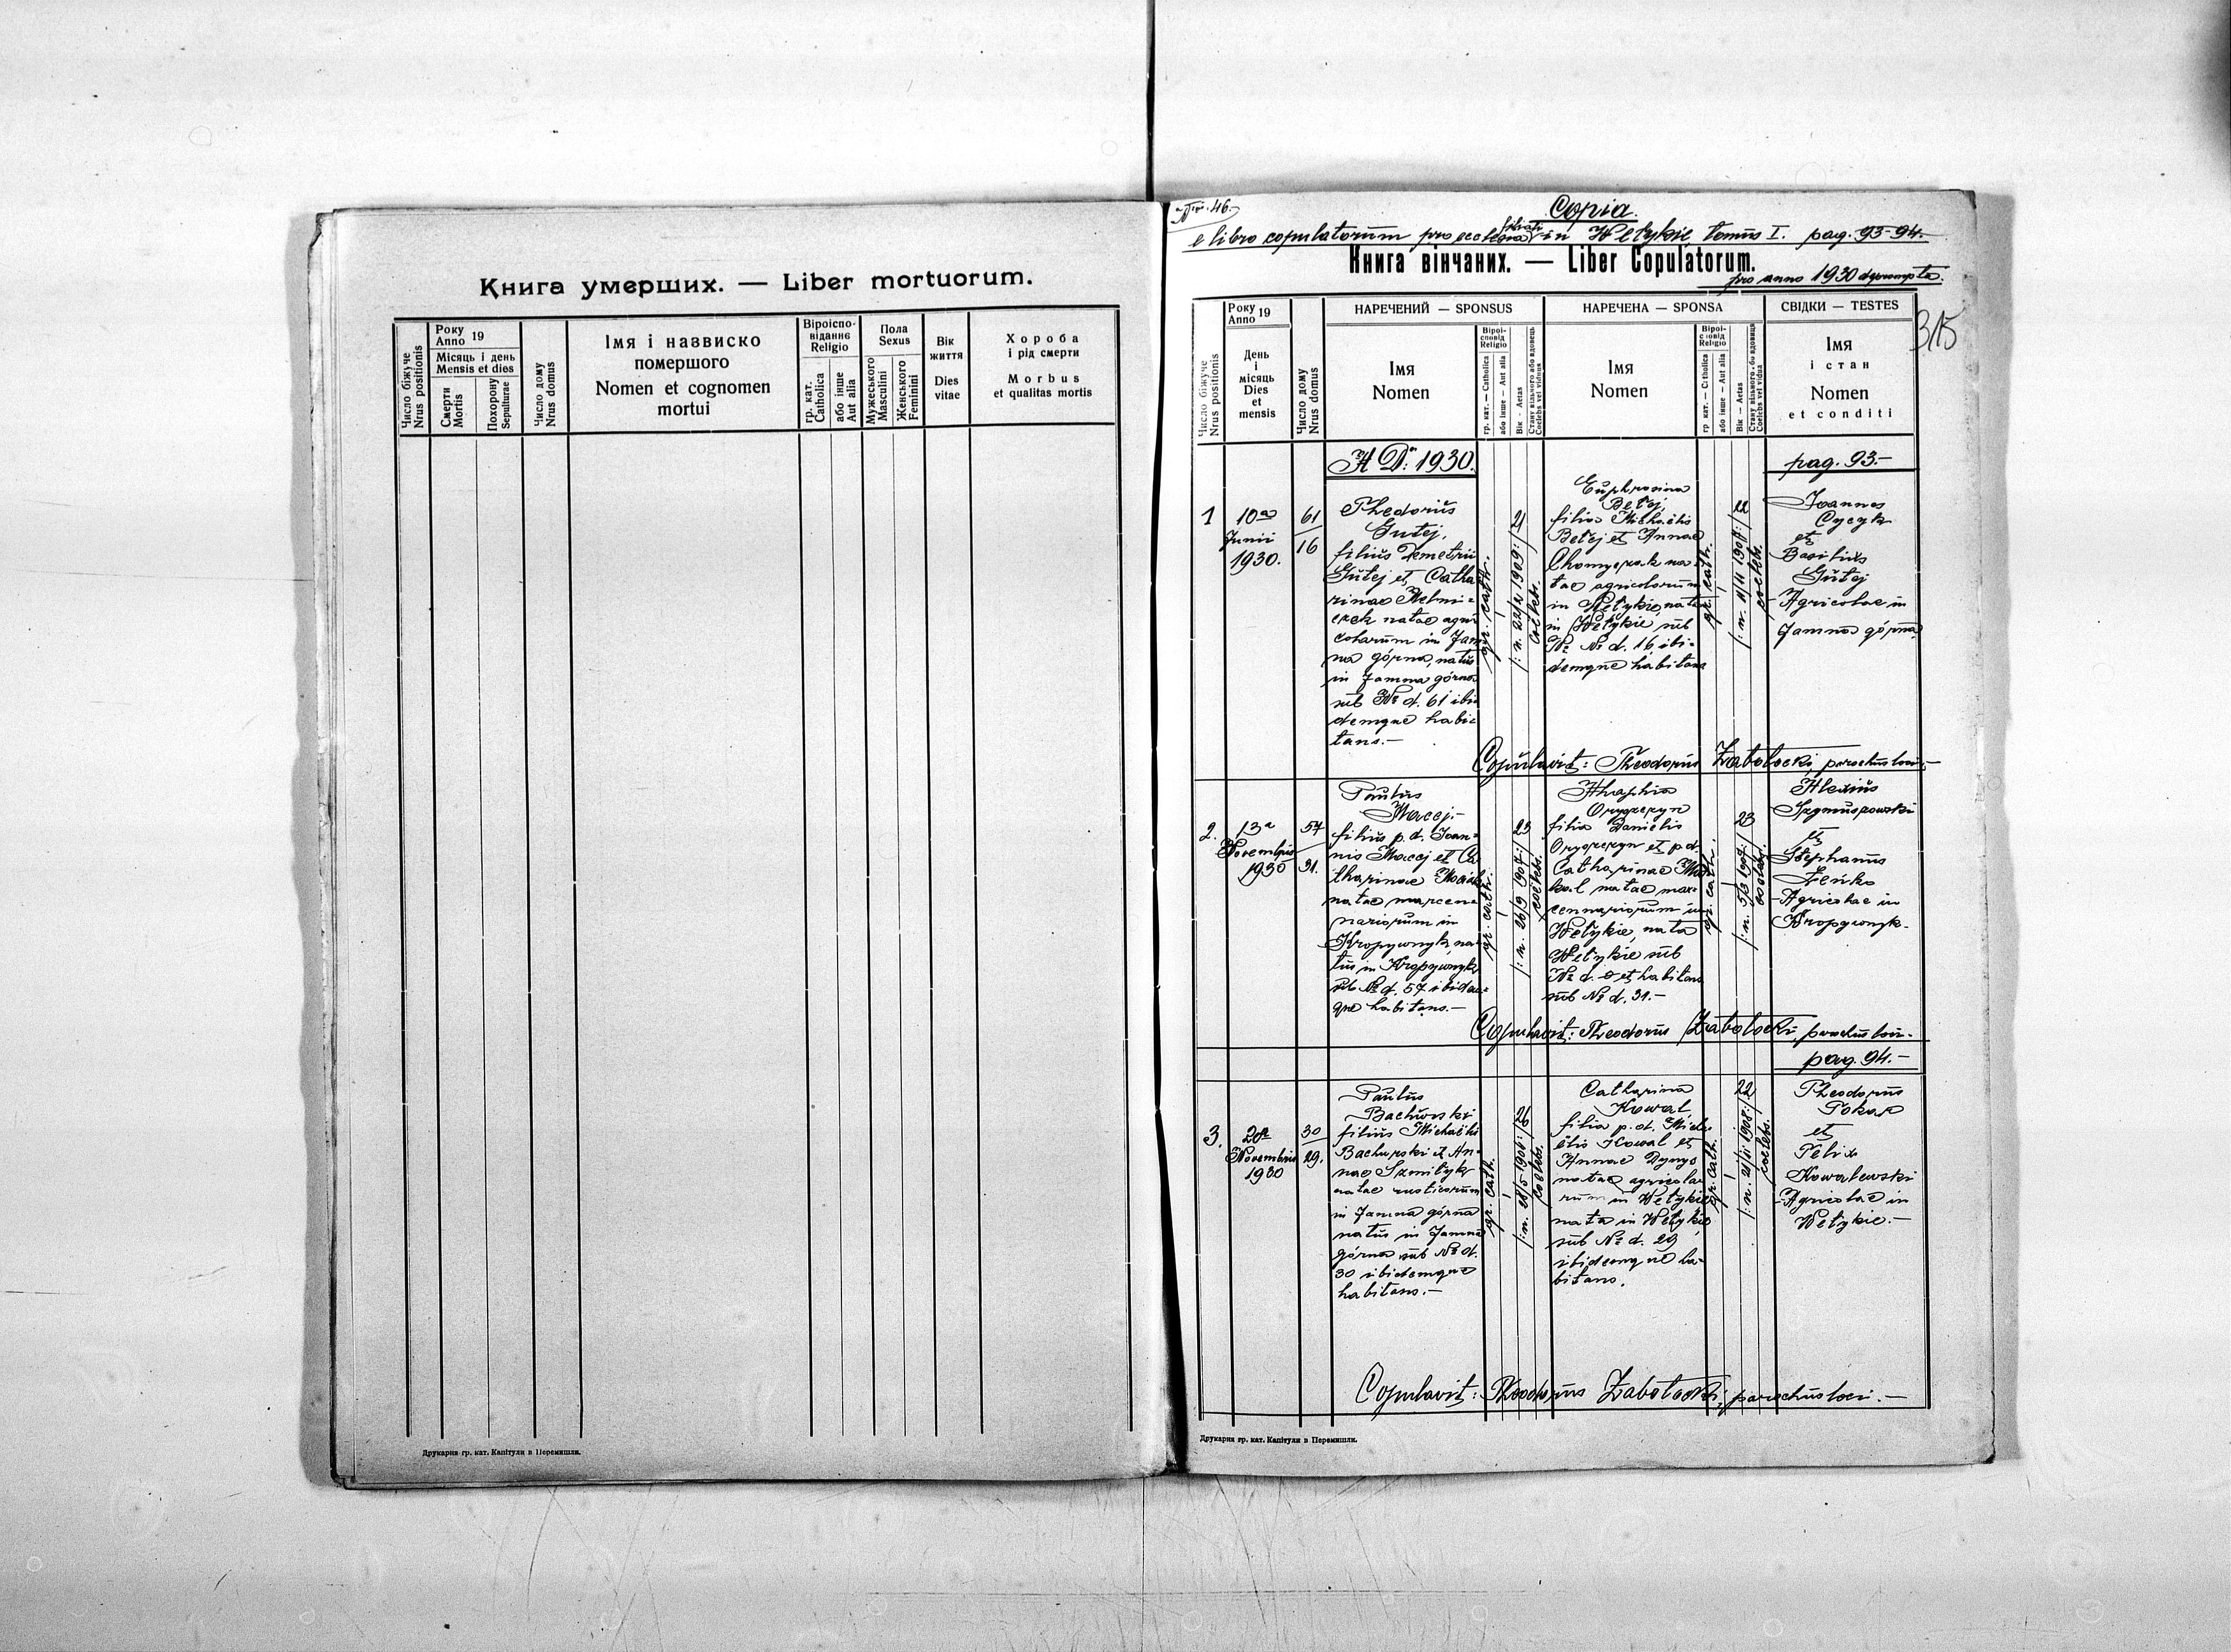 Книга умерших. — Liber mortuorum.
Число біжуче
Nrus positionis
Року
Anno 19
Місяць і день
Mensis et dies
Смерти
Mortis
Похорону
Sepulturae
Число дому
Nrus domus
Імя і назвиско
помершого
Nomen et cognomen
mortui
Віроіспо-
віданнє
Religio
гр. кат.
Catholica
або інше
Aut alia
Пола
Sexus
Мужеського
Masculini
Женського
Feminini
Вік
життя
Dies
vitae
Хороба
і рід смерти
Morbus
et qualitas mortis
Друкарня гр. кат. Капітули в Перемишли.
46.
Copia
e libro copulatorum pro ecclesia filiali in Wełykie tomus I. pag. 93-94.
Книга вінчаних. — Liber Copulatorum.
pro anno 1930
315
Число біжуче
Nrus positionis
Року
Anno 19
День
і
місяць
Dies
et
mensis
Число дому
Nrus domus
НАРЕЧЕНИЙ — SPONSUS
Імя
Nomen
Віроі-
сповід
Religio
гр. кат. — Catholica
або інше — Aut alia
Вік — Aetas
Стану вільного або вдовець
Coelebs vel viduus
НАРЕЧЕНА — SPONSA
Імя
Nomen
Віроі-
сповід
Religio
гр кат. — Catholica
або інше — Aut alia
Вік — Aetas
Стану вільного або вдовиця
Coelebs vel vidua
СВІДКИ — TESTES
Імя
і стан
Nomen
et conditi
A D: 1930.
pag. 93.-
1
10a
Junii
1930.
61
16
Theodorus
Gutej,
filius Demetrii
Gutej et Catha
rinae
natae agri
colarum in Jam
na górna, natus
in Jamna górna
sub No d. 61 ibi
demque habi-
tans.-
gr. cath.
21
/: n. 22/2 1909:/
coelebs.
Euphrosina
Betej,
filia Michaelis
Betej et Annae
na-
tae agricolarum
in Wełykie, nata
in Wełykie sub
No d. 16, ibi-
demque habitans
gr. cath.
22
coelebs.
Joannes
Cycyk
et
Basilius
Gutej
Agricolae in
Jamna górna
Copulavit: Theodorus Zabołocki, parochus loci.-
2.
13a
Novembris
1930
57
31.
Paulus
Macej.-
filius p. d. Joan-
nis Macej et Ca
tharinae
natae mercen-
nariorum in
Kropywnyk, na-
tus in Kropywnyk
sub No d. 57 ibidem-
que habitans.-
gr. cath.
23
/: n. 26/9 907:/
coelebs.
filia Danielis
et p. d.
Catharinae
natae mer-
cennariorum in
Wełykie, nata
Wełykie sub
No d. et habitans
sub No d. 31.-
gr. cath.
23
/: n. 5/3 1907:/
coelebs.
Alexius
et
Stephanus
Agricolae in
Kropywnyk.
Copulavit: Theodorus Zabołocki, parochus loci.-
pag. 94.-
3.
Novembris
1930
30
29.
Paulus
Bachurski
filius Michaelis
Bachurski et An-
nae
natae rusticorum
in Jamna górna
natus in Jamna
górna sub No d.
30 ibidemque
habitans.-
gr. cath.
coelebs.
Catharina
Kowal
filia p. d. Micha
elis Kowal et
Annae
natae agricola
rum in Wełykie
nata in Wełykie
sub No d. 29
ibidemque ha-
bitans.
gr. cath.
22
coelebs.
Theodorus
et
Felix
Kowalewski
Agricolae in
Wełykie.-
Copulavit: Theodorus Zabołocki, parochus loci.-
Друкарня гр. кат. Капітули в Перемишли.